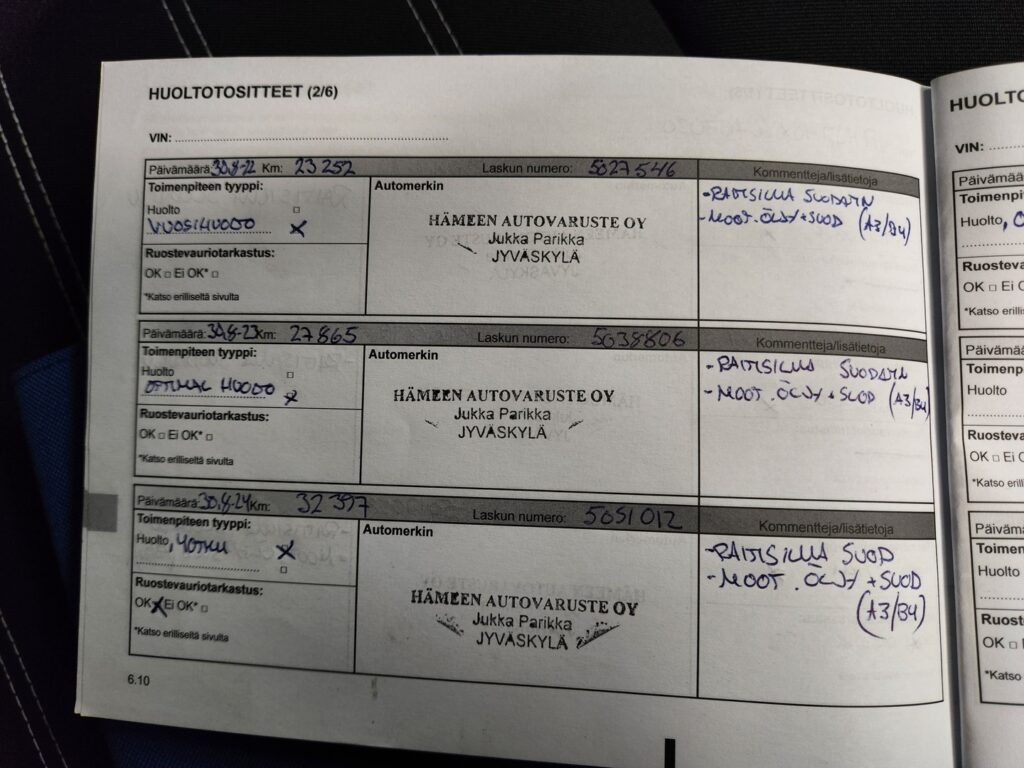 HUOLTOTOSITTEET (2/6)
VIN:
Päivämäärä: 30.8-22 Km: 23 252 Laskun numero: 5027546 Kommentteja/lisätietoja
Toimenpiteen tyyppi:
Huolto
VUOSIHUOLTO X
Ruostevauriotarkastus:
OK □ Ei OK* □
*Katso erilliseltä sivulta
Automerkin
HÄMEEN AUTOVARUSTE OY
Jukka Parikka
JYVÄSKYLÄ
- RAITISILMA SUODATIN
- MOOT.ÖLJY + SUOD (A3/B4)
Päivämäärä: 30.8-23 Km: 27865 Laskun numero: 5038806 Kommentteja/lisätietoja
Toimenpiteen tyyppi:
Huolto
OPTIMAL HUOLTO X
Ruostevauriotarkastus:
OK □ Ei OK* □
*Katso erilliseltä sivulta
Automerkin
HÄMEEN AUTOVARUSTE OY
Jukka Parikka
JYVÄSKYLÄ
- RAITISILMA SUODATIN
- MOOT.ÖLJY + SUOD (A3/B4)
Päivämäärä: 30.8-24 Km: 32 397 Laskun numero: 5051012 Kommentteja/lisätietoja
Toimenpiteen tyyppi:
Huolto, X
Ruostevauriotarkastus:
OK X Ei OK* □
*Katso erilliseltä sivulta
Automerkin
HÄMEEN AUTOVARUSTE OY
Jukka Parikka
JYVÄSKYLÄ
- RAITISILMA SUOD
- MOOT.ÖLJY + SUOD
(A3/B4)
6.10
HUOLTO
VIN:
Päivämää
Toimenpi
Huolto,
Ruostev
OK □ Ei O
*Katso erillise
Päivämää
Toimenp
Huolto
Ruostev
OK □ Ei
*Katso erillis
Päivämä
Toimen
Huolto
Ruost
OK □
*Katso